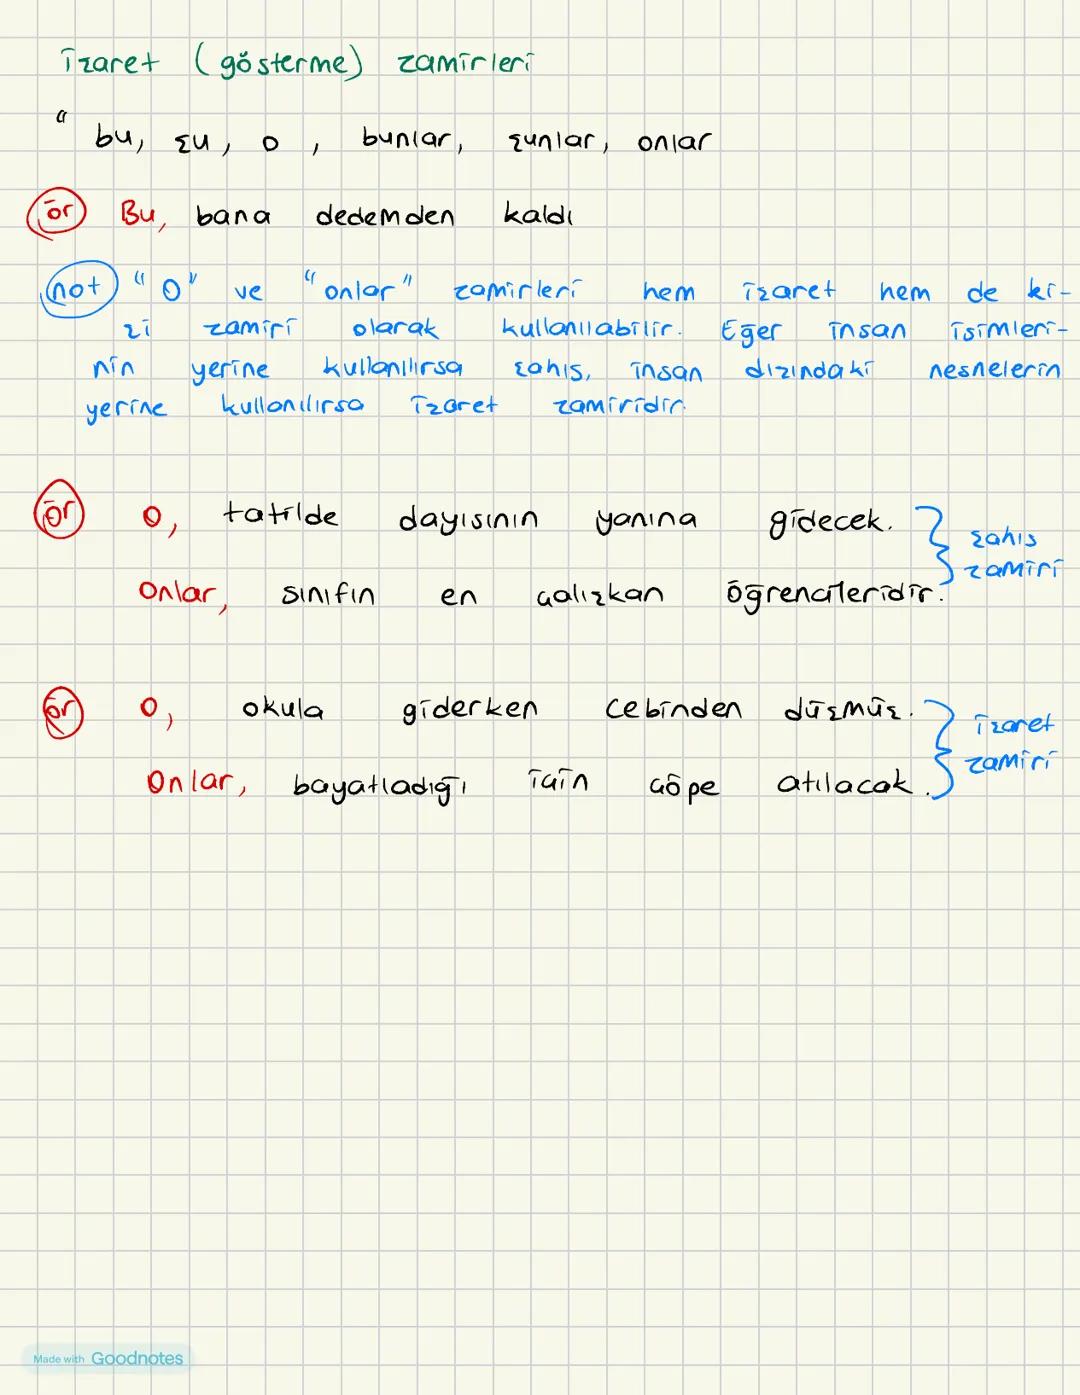 İşaret (gösterme) zamirleri
" bu, şu, o, bunlar, şunlar, onlar
ör Bu, bana dedemden kaldı
not "O" ve "onlar" zamirleri hem işaret hem de ki-
şi zamiri olarak kullanılabilir. Eğer insan isimleri-
nin yerine kullanılırsa şahıs, insan dışındaki nesnelerin
yerine kullanılırsa işaret zamiridir.
ör O, tatilde dayısının yanına gidecek.
Onlar, sınıfın en çalışkan öğrencileridir.
şahıs
zamiri
ör O, okula giderken cebinden düşmüş.
Onlar, bayatladığı için çöpe atılacak.
işaret
zamiri
Made with Goodnotes